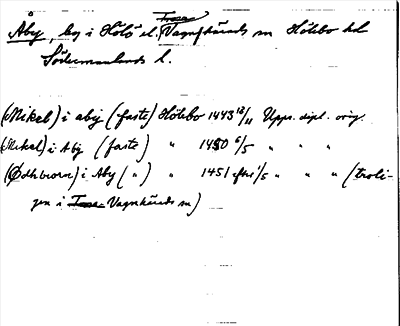 Trosa-
Åby, by i Hölö el. Vagnhärads sn Hölebo hd
Södermanlands l.
(Mikel) i abij (faste) Hölebo 1443 12/11 Upps. dipl. orig.
(Mikel) i Aby (faste) " 1450 6/5 " " "
(Ødhbiorn) i Aby (") " 1451 efter 1/5 " " " (troli-
gen i Trosa- Vagnhärads sn)